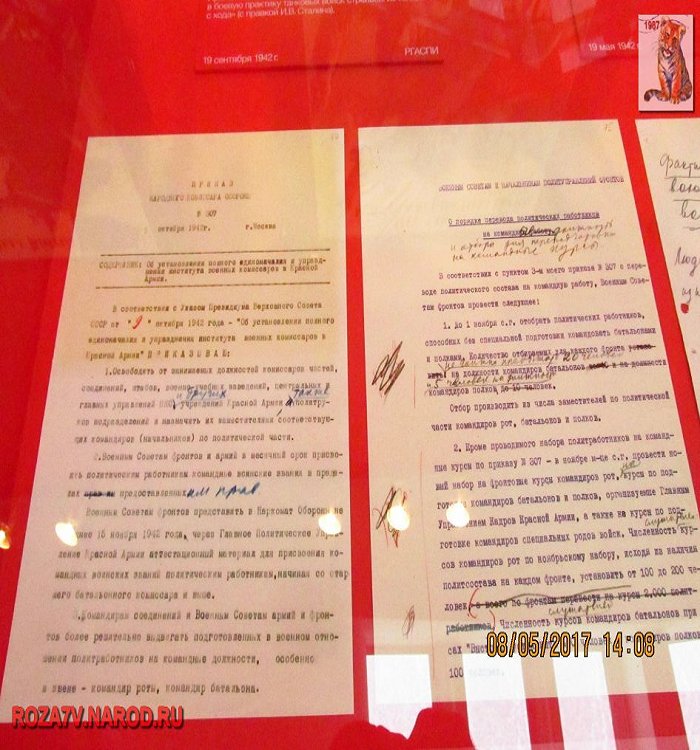 в боевую практику танковых войск стрельбы из танков
с хода» (с правкой И.В. Сталина).
19 сентября 1942 г.
РГАСПИ
19 мая 1942 г.
1987
ПРИКАЗ
НАРОДНОГО КОМИССАРА ОБОРОНЫ
№ 307
октября 1942г. г.Москва
СОДЕРЖАНИЕ: Об установлении полного единоначалия и упразд-
нении института военных комиссаров в Красной
Армии.
В соответствии с Указом Президиума Верховного Совета
СССР от "9" октября 1942 года - "Об установлении полного
единоначалия и упразднении института военных комиссаров в
Красной Армии" ПРИКАЗЫВАЮ:
1.Освободить от занимаемых должностей комиссаров частей,
соединений, штабов, военно-учебных заведений, центральных и
главных управлений НКО, учреждений Красной Армии, политру-
и других
а также
ков подразделений и назначить их заместителями соответствую-
щих командиров (начальников) по политической части.
2.Военным Советам фронтов и армий в месячный срок присво-
ить политическим работникам командные воинские звания в преде-
лах предоставленных им прав
Военным Советам фронтов представить в Наркомат Обороны не
позднее 15 ноября 1942 года, через Главное Политическое Управ-
ление Красной Армии аттестационный материал для присвоения ко-
мандных воинских званий политическим работникам, начиная со стар-
шего батальонного комиссара и выше.
3.Командирам соединений и Военным Советам армий и фрон-
тов более решительно выдвигать подготовленных в военном отно-
шении политработников на командные должности, особенно
в звене - командир роты, командир батальона.
ВОЕННЫМ СОВЕТАМ И НАЧАЛЬНИКАМ ПОЛИТУПРАВЛЕНИЙ ФРОНТОВ
О порядке перевода политических работников
на командные должности
и отбора для
на командные курсы
В соответствии с пунктом 3-м моего приказа № 307 о пере-
воде политического состава на командную работу, Военным Сове-
там фронтов провести следующее:
1. До 1 ноября с.г. отобрать политических работников,
способных без специальной подготовки командовать батальонами
и полками. Количество отбираемых для каждого фронта
20 человек
на должности командиров батальонов и на должности
и 5 человек на
командиров полков до 10 человек.
Отбор производить из числа заместителей по политической
части командиров рот, батальонов и полков.
2. Кроме проводимого набора политработников на команд-
ные курсы по приказу № 307 - в ноябре м-це с.г. провести но-
вый набор на фронтовые курсы командиров рот, на курсы по под-
готовке командиров батальонов и полков, организуемые Главным
Управлением Кадров Красной Армии, а также на курсы по под-
готовке командиров специальных родов войск. Численность кур-
слушателей
сов командиров рот по ноябрьскому набору, исходя из наличия
политсостава на каждом фронте, установить от 100 до 200 че-
ловек, а всего по фронтам перевести на курсы 2.000 полит-
работников. Численность курсов командиров батальонов при
слушателей
100
Факты
вою
Люд
08/05/2017 14:08
ROZATV.NAROD.RU